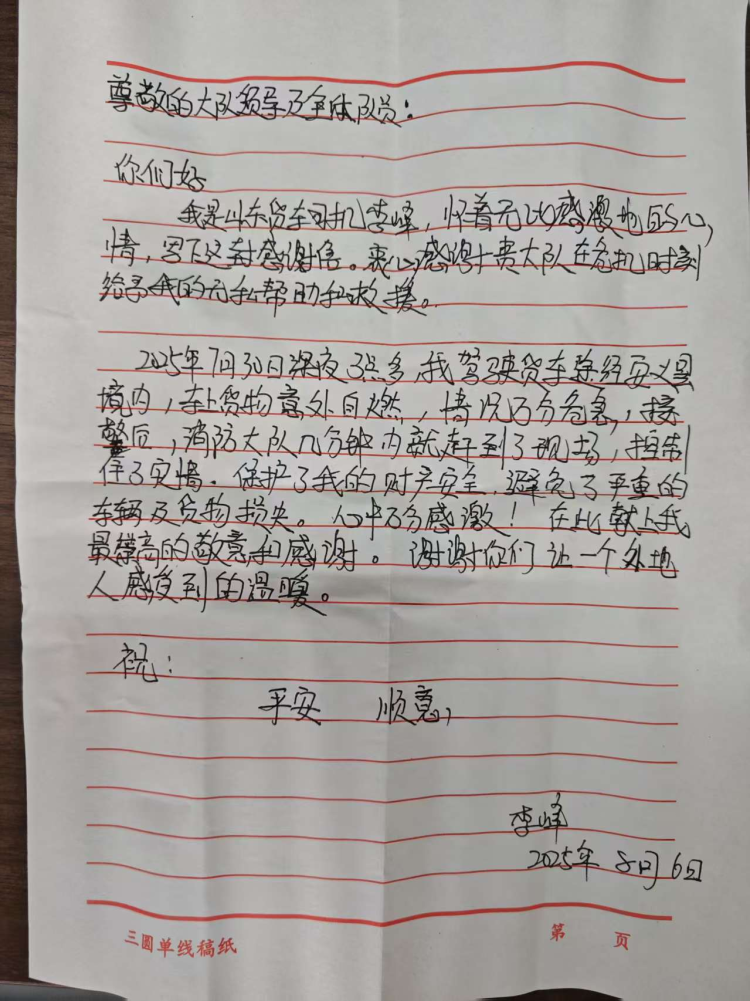 尊敬的大队领导及全体队员：
你们好
我是山东货车司机李峰，怀着无比感激地的心
情，写下这封感谢信。衷心感谢贵大队在危机时刻
给予我的无私帮助和救援。
2025年7月30日深夜3点多，我驾驶货车途经安义县
境内，车上货物意外自燃，情况万分危急，接
警后，消防大队几分钟内就赶到了现场，控制
住了灾情。保护了我的财产安全，避免了严重的
车辆及货物损失。心中万分感激！在此献上我
最崇高的敬意和感谢。谢谢你们让一个外地
人感受到的温暖。
祝：
平安 顺意，
李峰
2025年8月6日
三圆单线稿纸
第 页